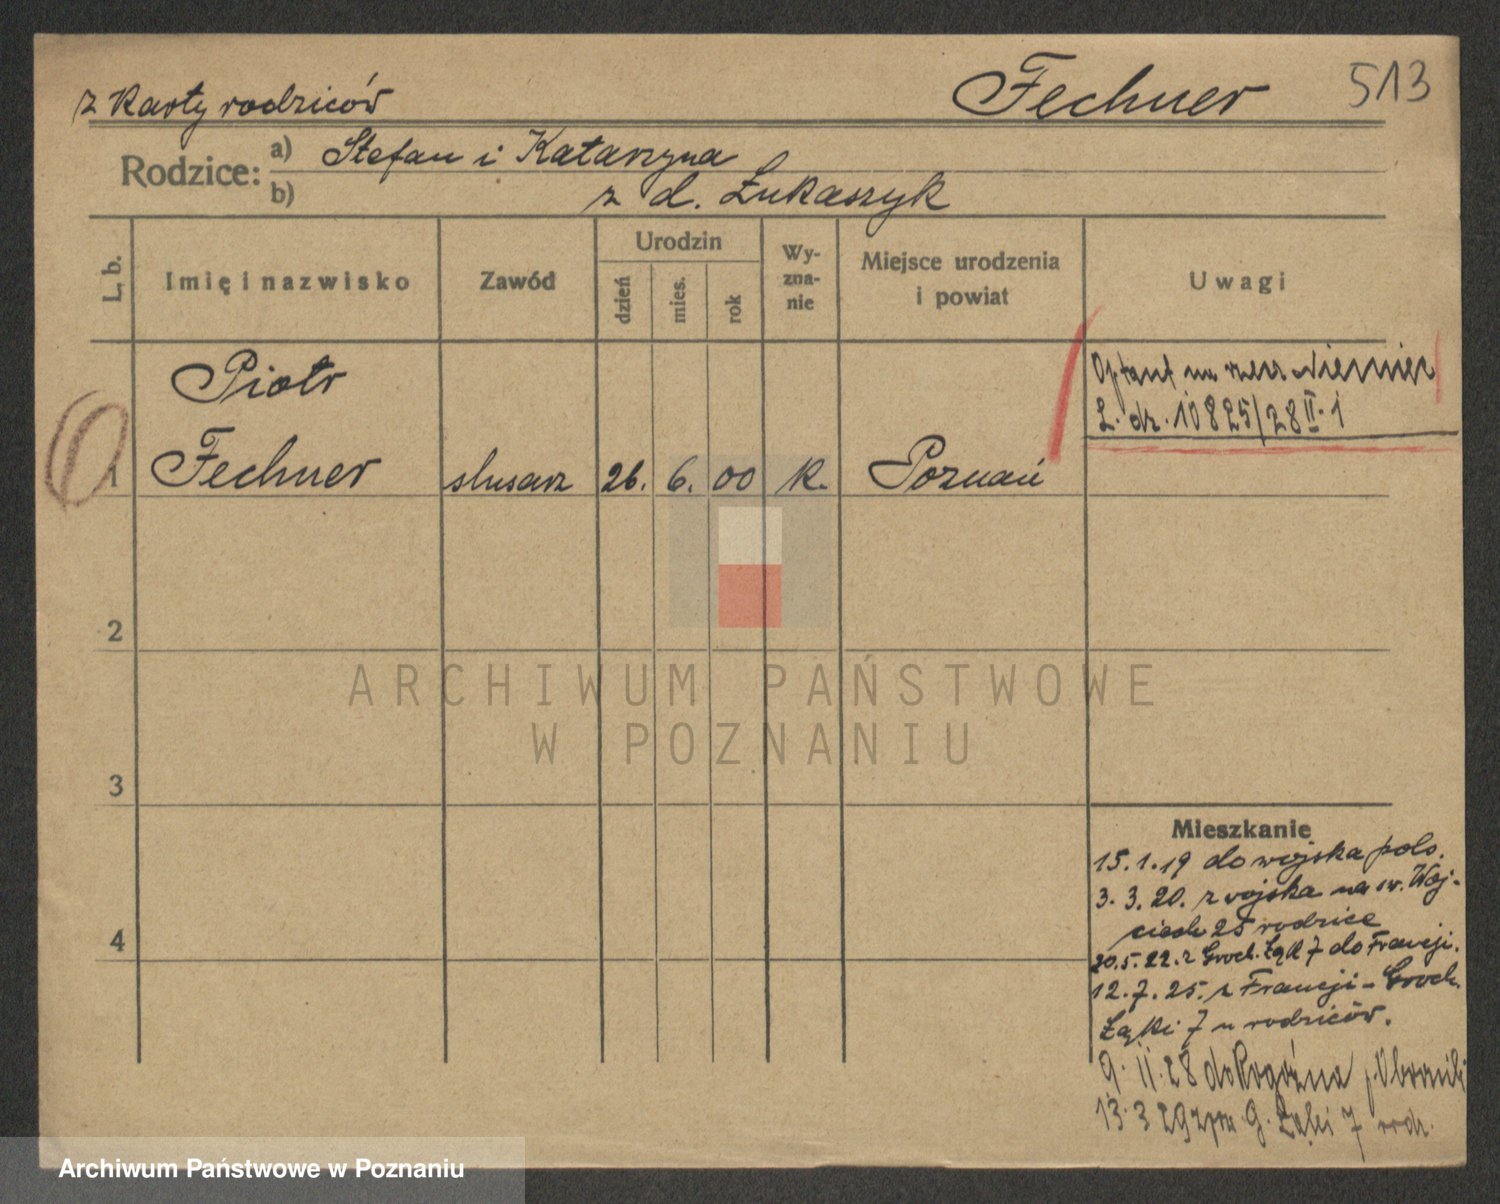 z karty rodziców
Fechner
513
Rodzice:
a) Stefan i Katarzyna
b) z d. Łukaszyk
L. b.
Imię i nazwisko
Zawód
Urodzin
dzień
mies.
rok
Wy-
zna-
nie
Miejsce urodzenia
i powiat
Uwagi
Optant na rzecz Niemiec
L. dz. 10825/28 II. 1
Piotr
1 Fechner ślusarz 26. 6. 00 k. Poznań
2
3
4
ARCHIWUM PAŃSTWOWE
W POZNANIU
Mieszkanie
15.1.19 do wojska pols.
3.3.20. z wojska na św. Woj-
ciech 25 rodzice
20.5.22. z Groch. Łąk 7 do Francji.
12.7.25. z Francji - Groch.
Łąki 7 u rodziców.
9. II. 28 do Rogoźna p. Oborniki
13.3 29 G. Łąki 7 rodz.
Archiwum Państwowe w Poznaniu